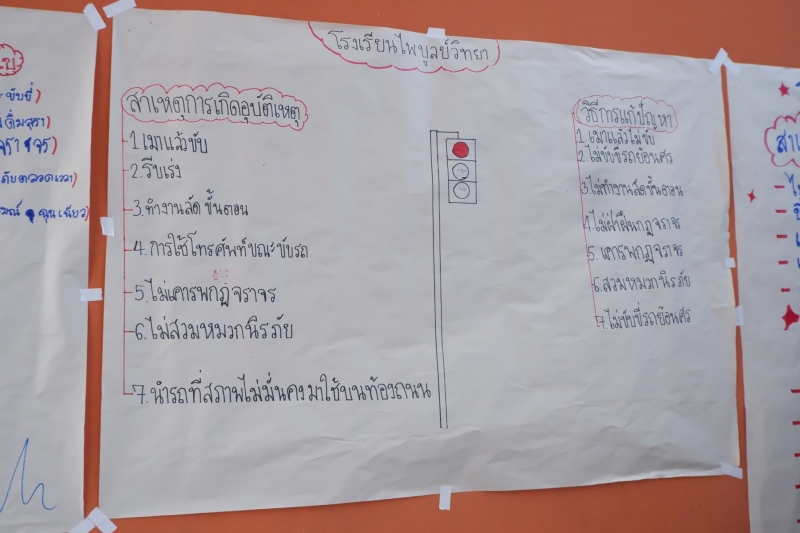 โรงเรียนไพบูลย์วิทยา
สาเหตุการเกิดอุบัติเหตุ
1.เมาแล้วขับ
2.รีบเร่ง
3.ทำงานลัดขั้นตอน
4.การใช้โทรศัพท์ขณะขับรถ
5.ไม่เคารพกฎจราจร
6.ไม่สวมหมวกนิรภัย
7.นำรถที่สภาพไม่มั่นคงมาใช้บนท้องถนน
วิธีการแก้ปัญหา
1.เมาแล้วไม่ขับ
2.ไม่ขับขี่รถย้อนศร
3.ไม่ทำงานลัดขั้นตอน
4.ไม่ฝ่าฝืนกฎจราจร
5.เคารพกฎจราจร
6.สวมหมวกนิรภัย
7.ไม่ขับขี่รถย้อนศร